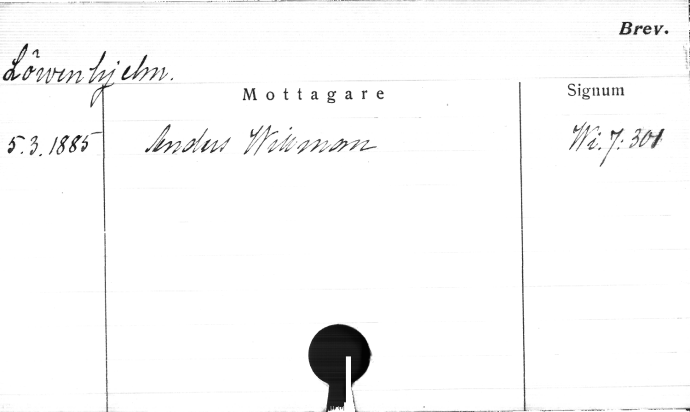 Brev.
Löwenhjelm.
Mottagare Signum
5.3.1885 Anders Wikman Wi. 7: 301